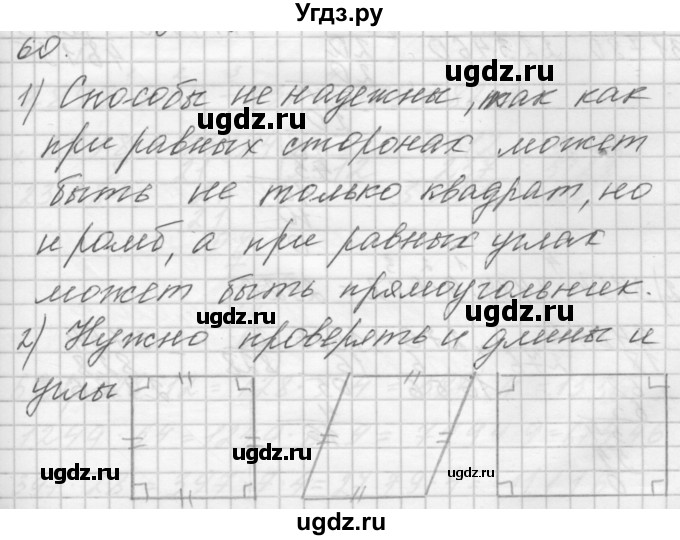 Угдз.ру
60.
1) Способы не надежны, так как
ugdz.ru
при равных сторонах может
быть не только квадрат, но
и ромб, а при равных углах
может быть прямоугольник.
ugdz.ru ugdz.ru
2) Нужно проверять и длины и
углы
ugdz.ru ugdz.ru ugdz.ru
ugdz.ru